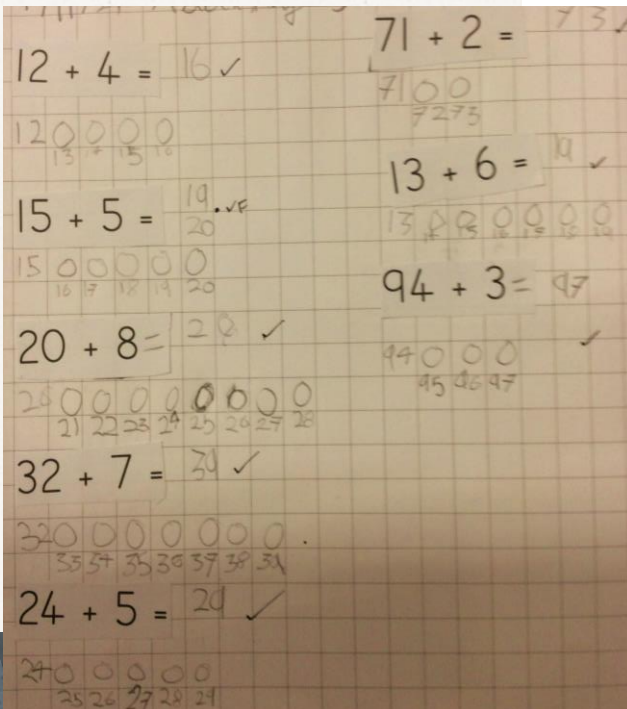 12 + 4 = 16 ✓
12 0 0 0 0
13 14 15 16
15 + 5 = 19 . VF
20
15 0 0 0 0 0
16 17 18 19 20
20 + 8 = 28 ✓
20 0 0 0 0 0 0 0 0
21 22 23 24 25 26 27 28
32 + 7 = 39 ✓
32 0 0 0 0 0 0 0 .
33 34 35 36 37 38 39
24 + 5 = 29 ✓
24 0 0 0 0 0
25 26 27 28 29
71 + 2 = 73 ✓
71 0 0
72 73
13 + 6 = 19 ✓
13 0 0 0 0 0 0
94 + 3 = 97
✓
94 0 0 0
95 96 97